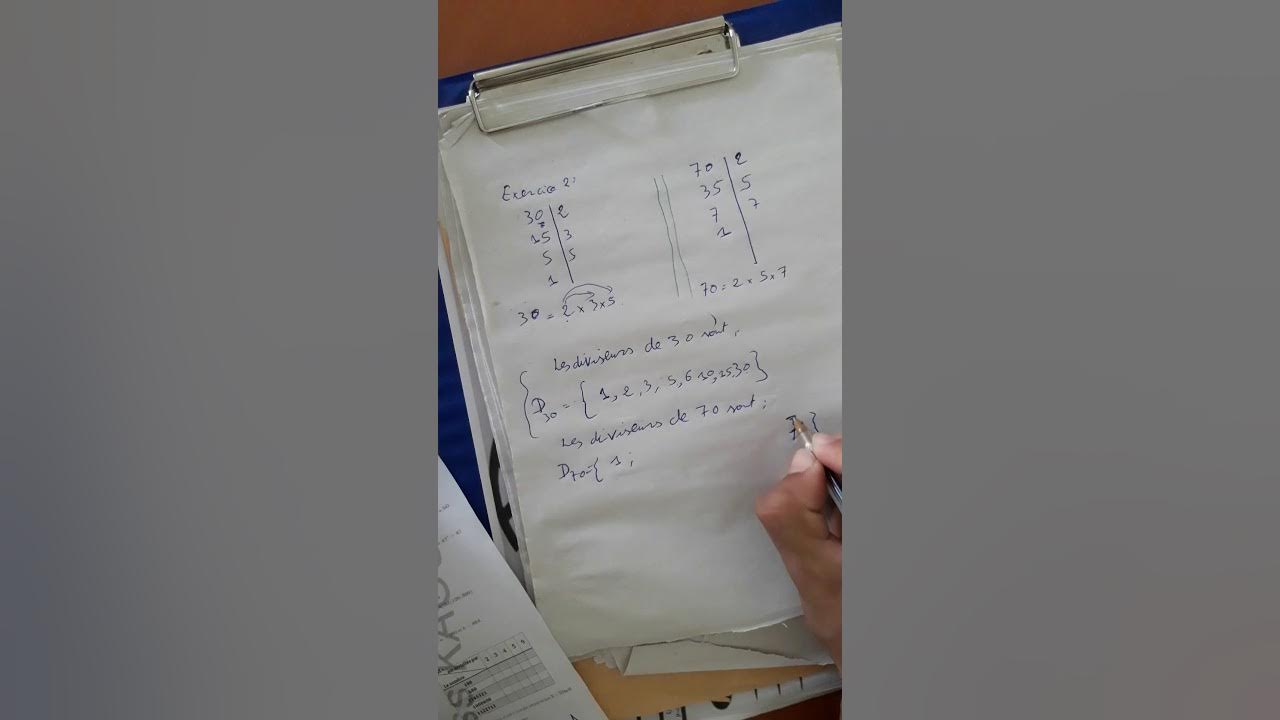 Exercice 2:
30 | 2
15 | 3
5 | 5
1 |
30 = 2 x 3 x 5
70 | 2
35 | 5
7 | 7
1 |
70 = 2 x 5 x 7
Les diviseurs de 30 sont;
D30 = { 1, 2, 3, 5, 6 10, 15, 30 }
Les diviseurs de 70 sont;
D70={ 1;
70 }
2 3 4 5 6